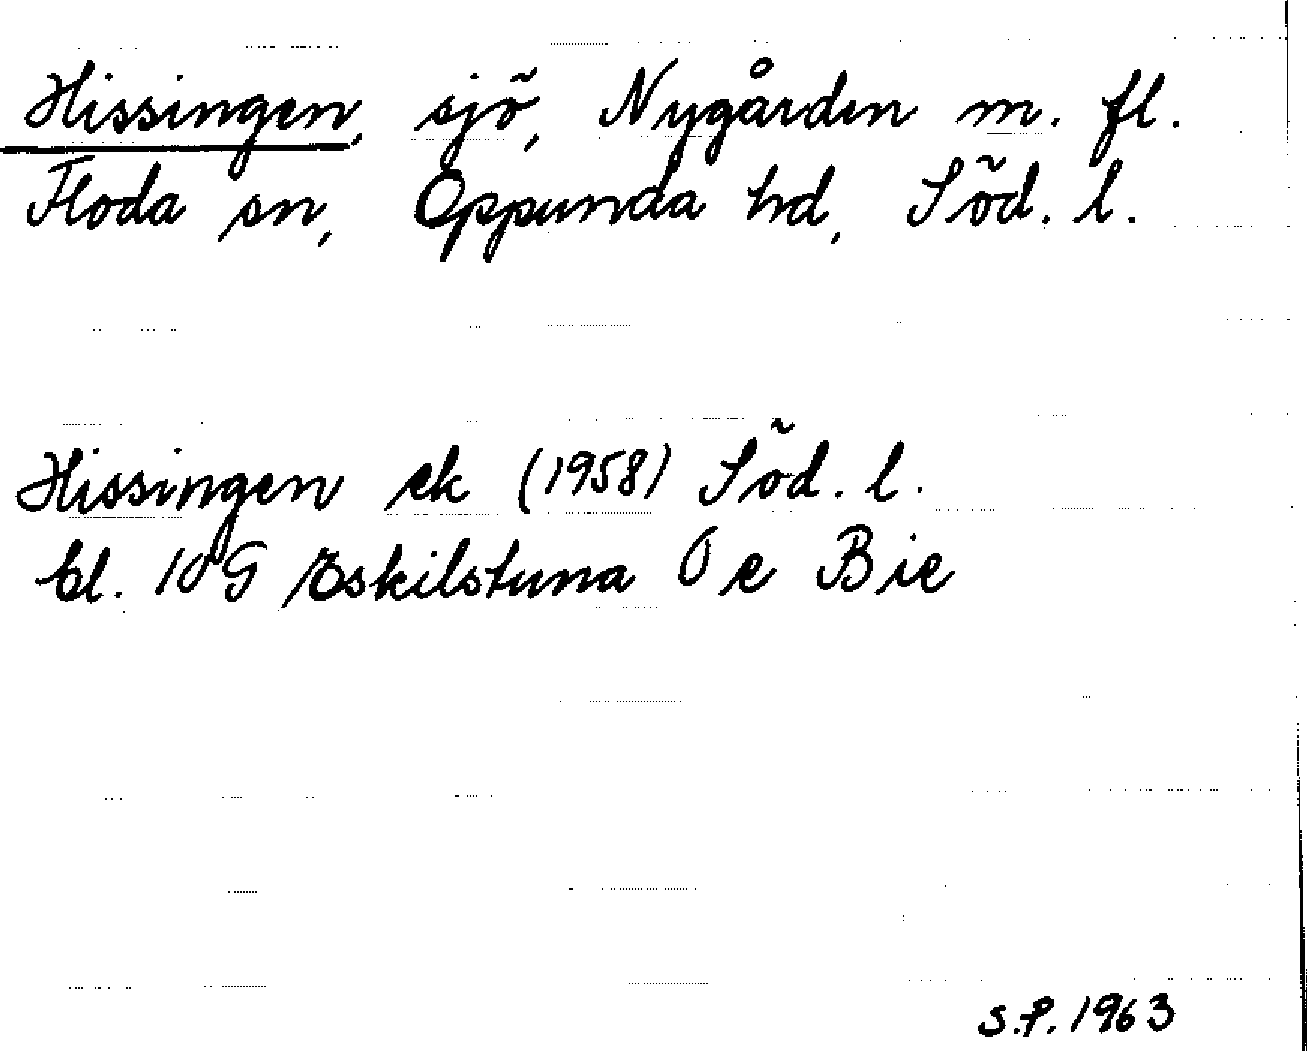 Hissingen, sjö, Nygården m. fl.
Floda sn, Oppunda hd, Söd. l.
Hissingen ek (1958) Söd. l.
bl. 10 G Eskilstuna 0 e Bie
S.P. 1963